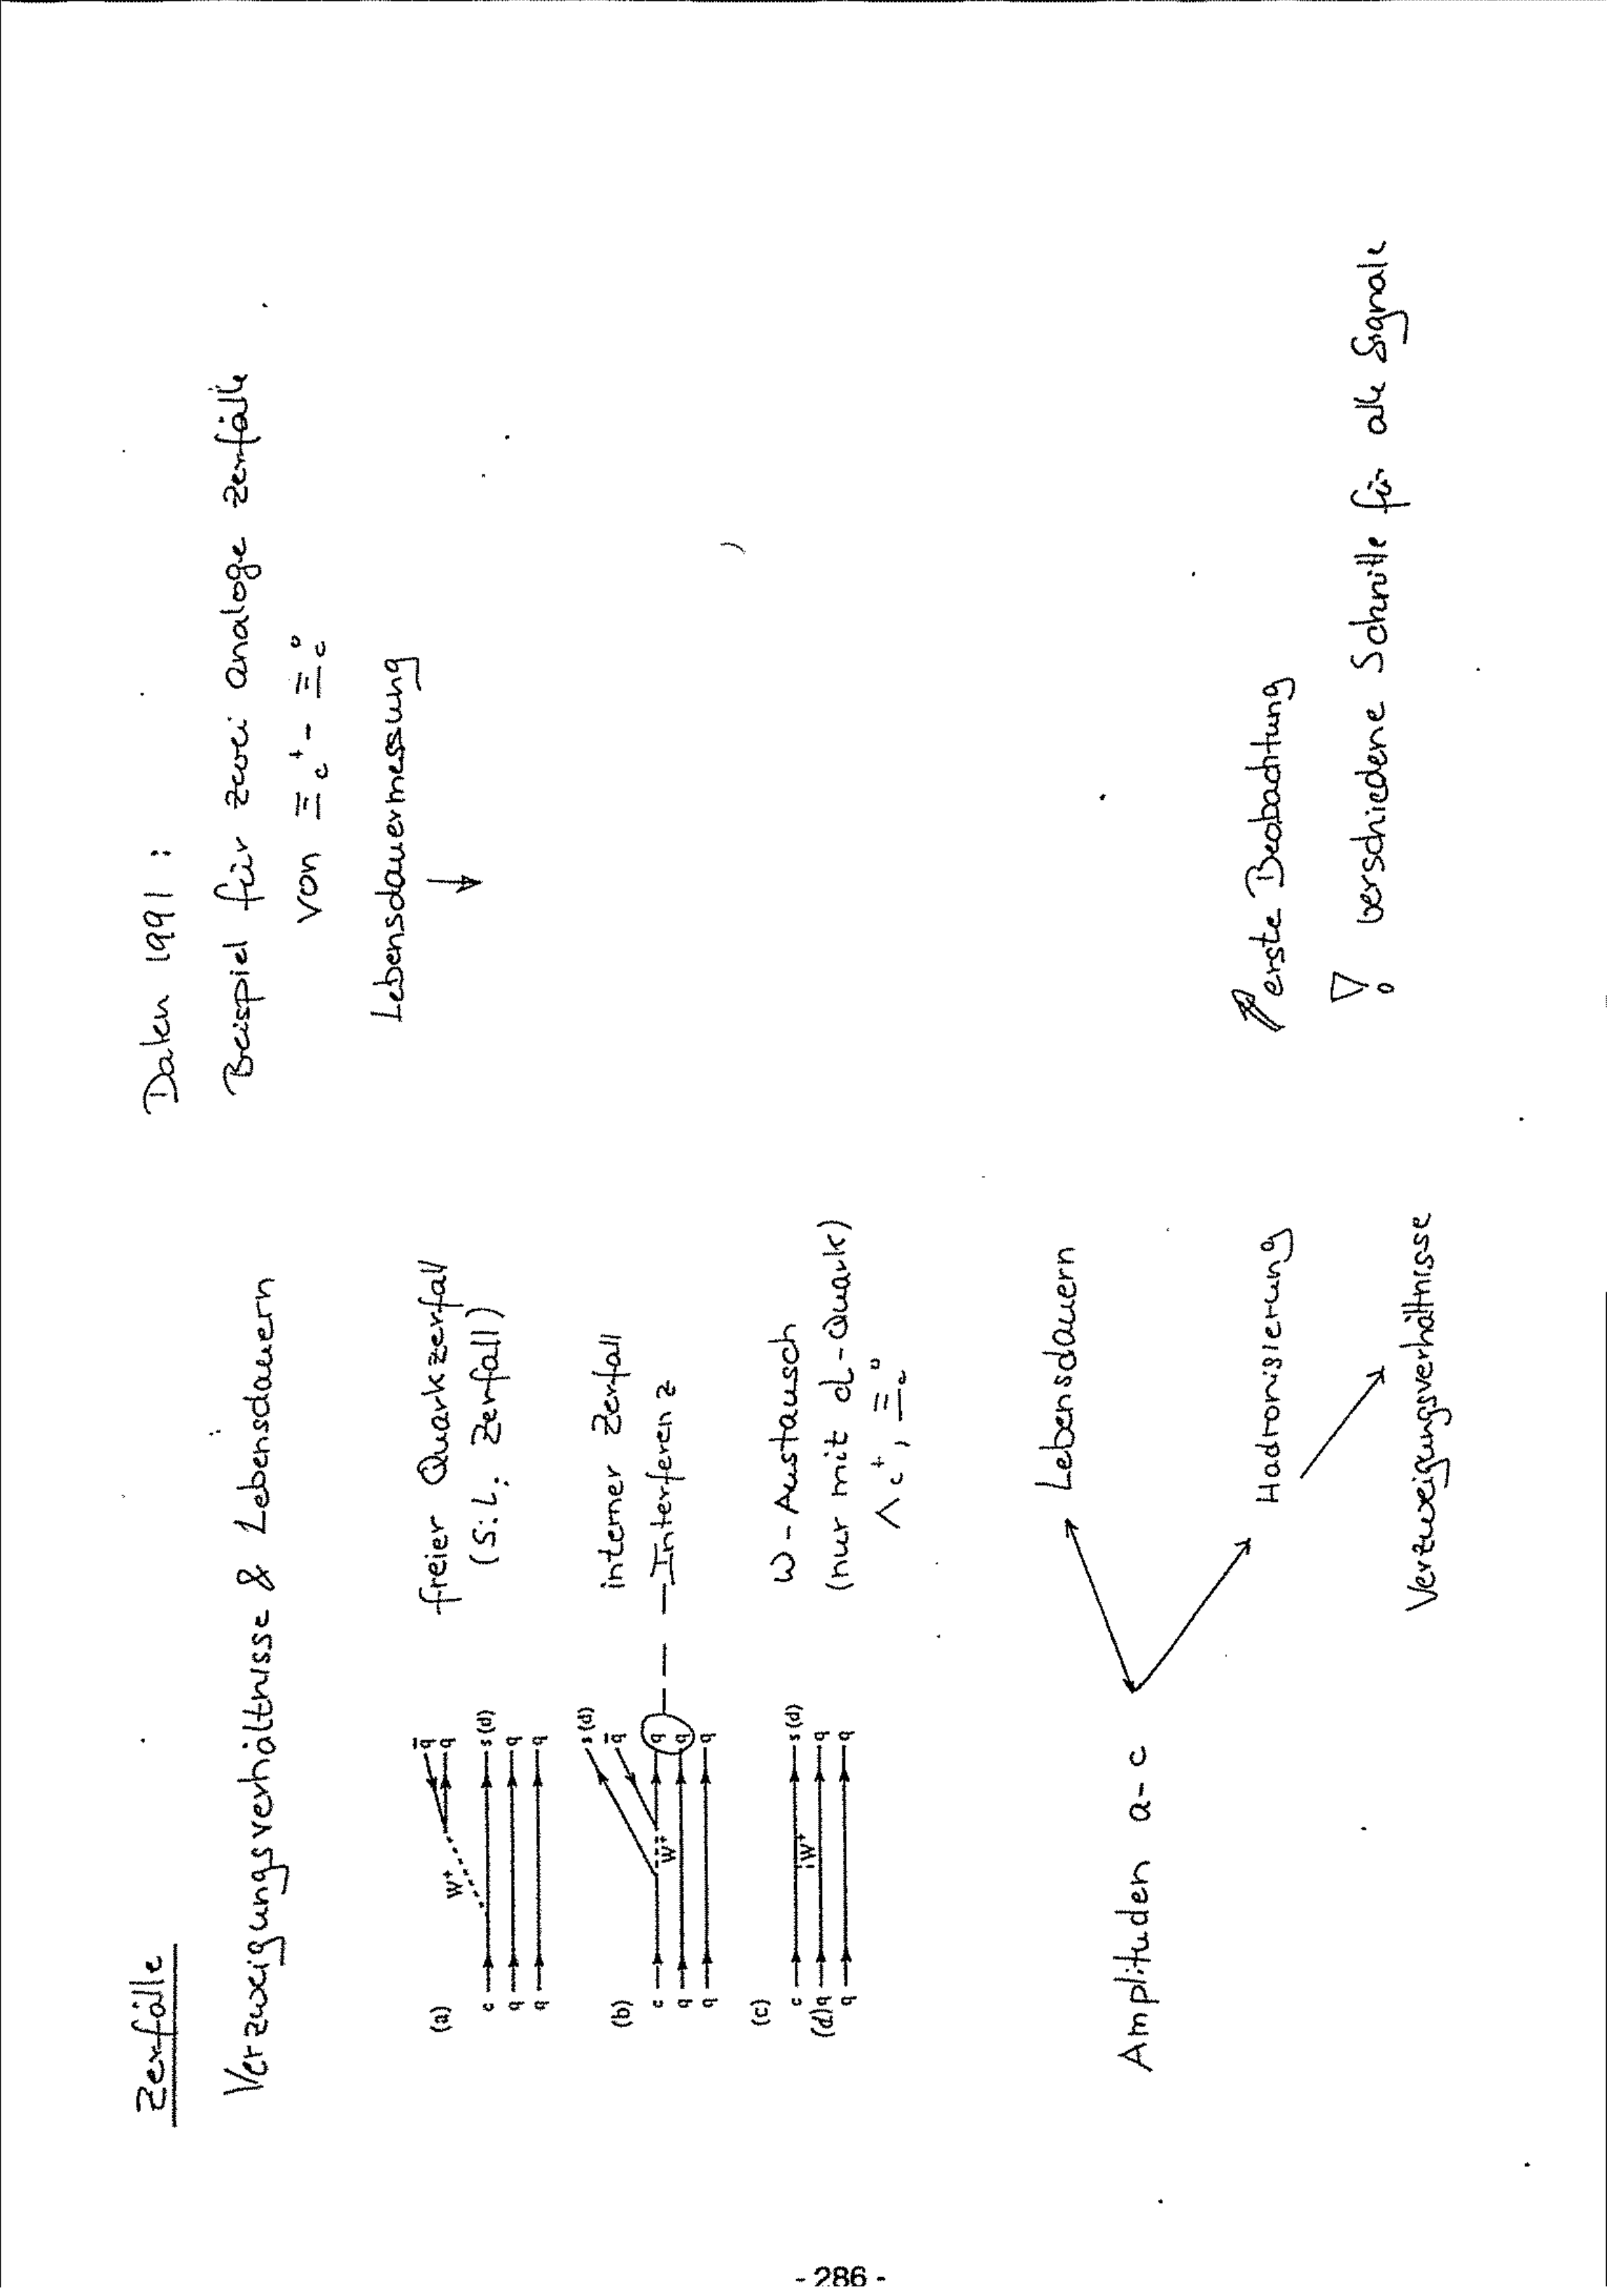 Zerfälle
Verzweigungsverhältnisse & Lebensdauern
(a)
W⁺
q̄
q
c
s (d)
q
q
q
q
freier Quarkzerfall
(S.L. Zerfall)
(b)
s (d)
q̄
c
W⁺
q
q
q
q
q
interner Zerfall
Interferenz
(c)
c
s (d)
W⁺
(d) q
q
q
q
W-Austausch
(nur mit d-Quark)
Λc⁺, Ξc⁰
Amplituden a-c
Lebensdauern
Hadronisierung
Verzweigungsverhältnisse
Daten 1991:
Beispiel für zwei analoge Zerfälle
von Ξc⁺ - Ξc⁰
Lebensdauermessung
erste Beobachtung
verschiedene Schnitte für alle Signale
- 286 -